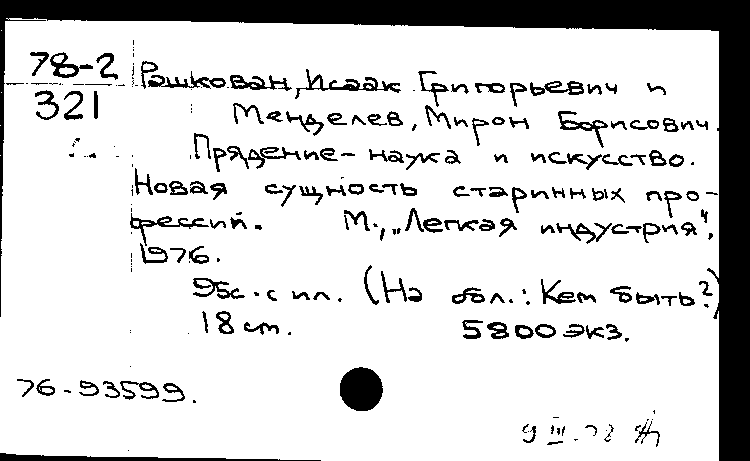 78-2
321
Рашкован, Исаак Григорьевич и
Менделев, Мирон Борисович.
Прядение - наука и искусство.
Новая сущность старинных про-
фессий. М., „Легкая индустрия",
1976.
95с. с ил. (На обл.: Кем быть?)
18 см. 5800 экз.
76-93599.
9 III. 78